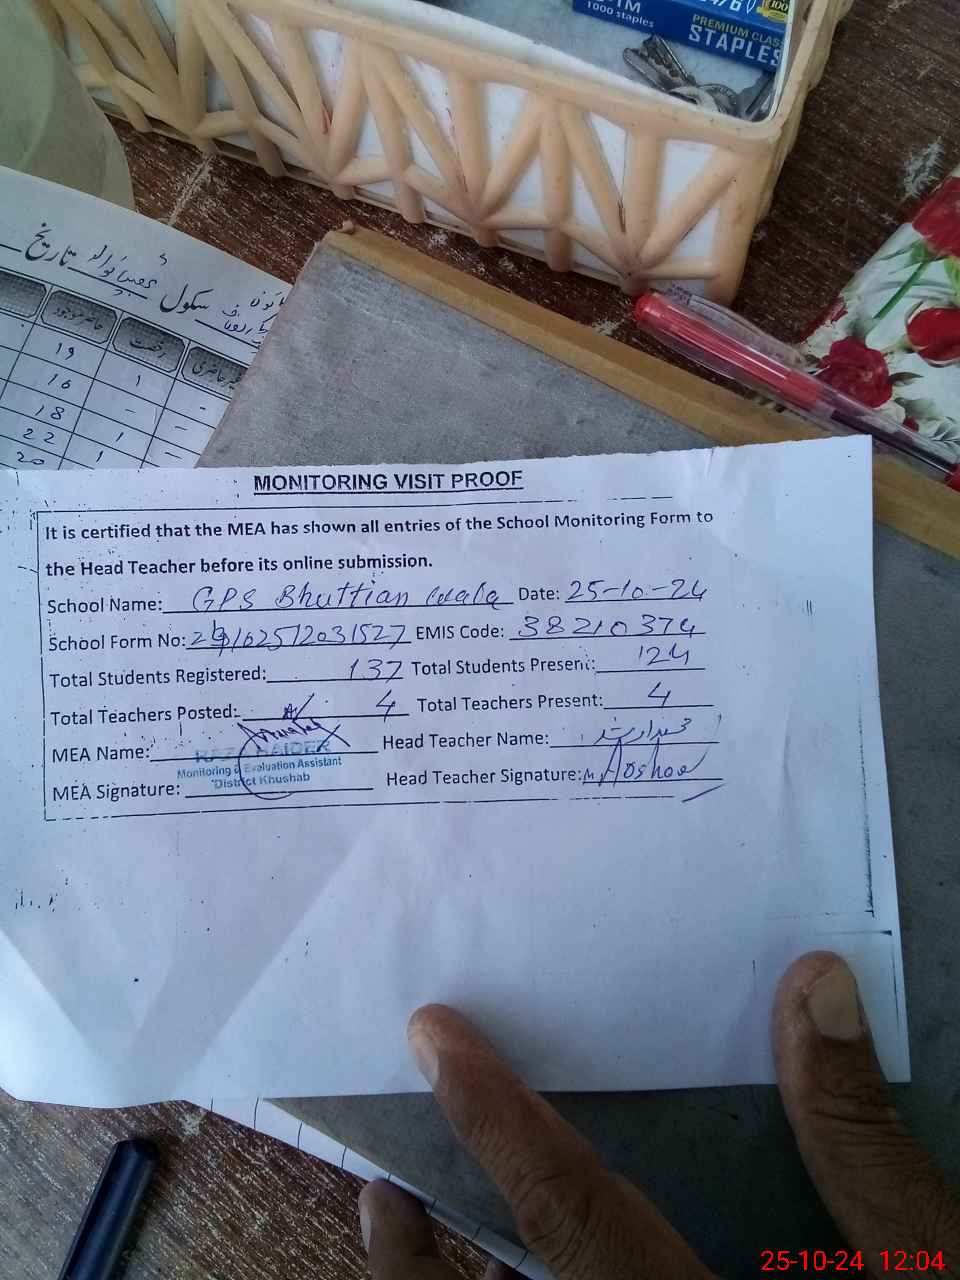 1000 staples
PREMIUM CLASS
STAPLES
100
سکول تاریخ
حاضر موجود رخصت
19
16 1 - -
18 - -
22 1 -
20 1
MONITORING VISIT PROOF
It is certified that the MEA has shown all entries of the School Monitoring Form to
the Head Teacher before its online submission.
School Name: GPS Bhuttian wala Date: 25-10-24
School Form No: EMIS Code: 38210374
Total Students Registered: 137 Total Students Present: 124
Total Teachers Posted: 4 Total Teachers Present: 4
MEA Name: HAIDER Head Teacher Name:
Monitoring & Evaluation Assistant
District Khushab
MEA Signature: Head Teacher Signature:
25-10-24 12:04